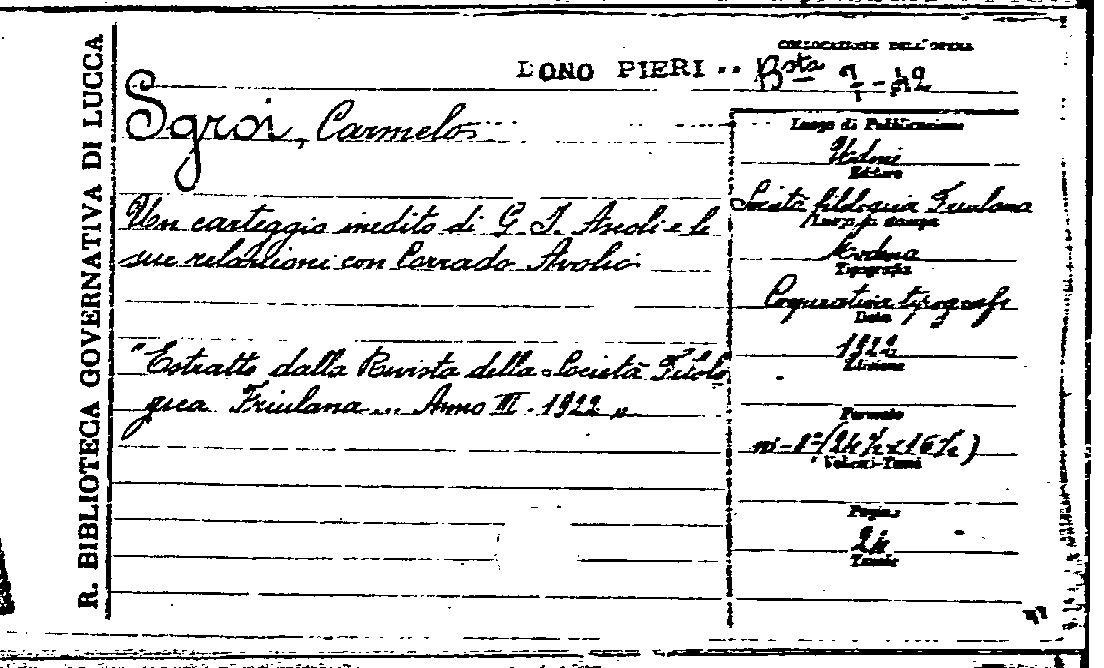 R. BIBLIOTECA GOVERNATIVA DI LUCCA
COLLOCAZIONE DELL'OPERA
DONO PIERI .. Bsta
Sgroi, Carmelo
Un carteggio inedito di G. I. Ascoli e le
sue relazioni con Corrado Avolio
"Estratto dalla Rivista della Società Filolo
gica Friulana ... Anno III - 1922 "
Luogo di Pubblicazione
Udine
Editore
Società filologica Friulana
Luogo di stampa
Modena
Tipografia
Cooperativa tipografi
Data
1922
Edizione
Formato
in-8° (24½ x 16½)
Volumi-Tomi
Pagine
24
Tavole